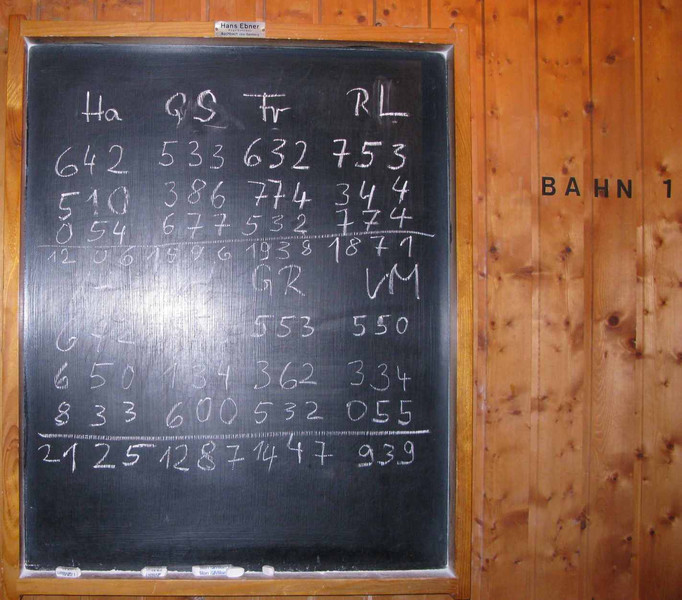 Hans Ebner
Ha QS Fr RL
642 533 632 753
510 386 774 344
054 677 532 774
1206 1596 1938 1871
GR VM
553 550
650 134 362 334
833 600 532 055
2125 1287 1447 939
BAHN 1